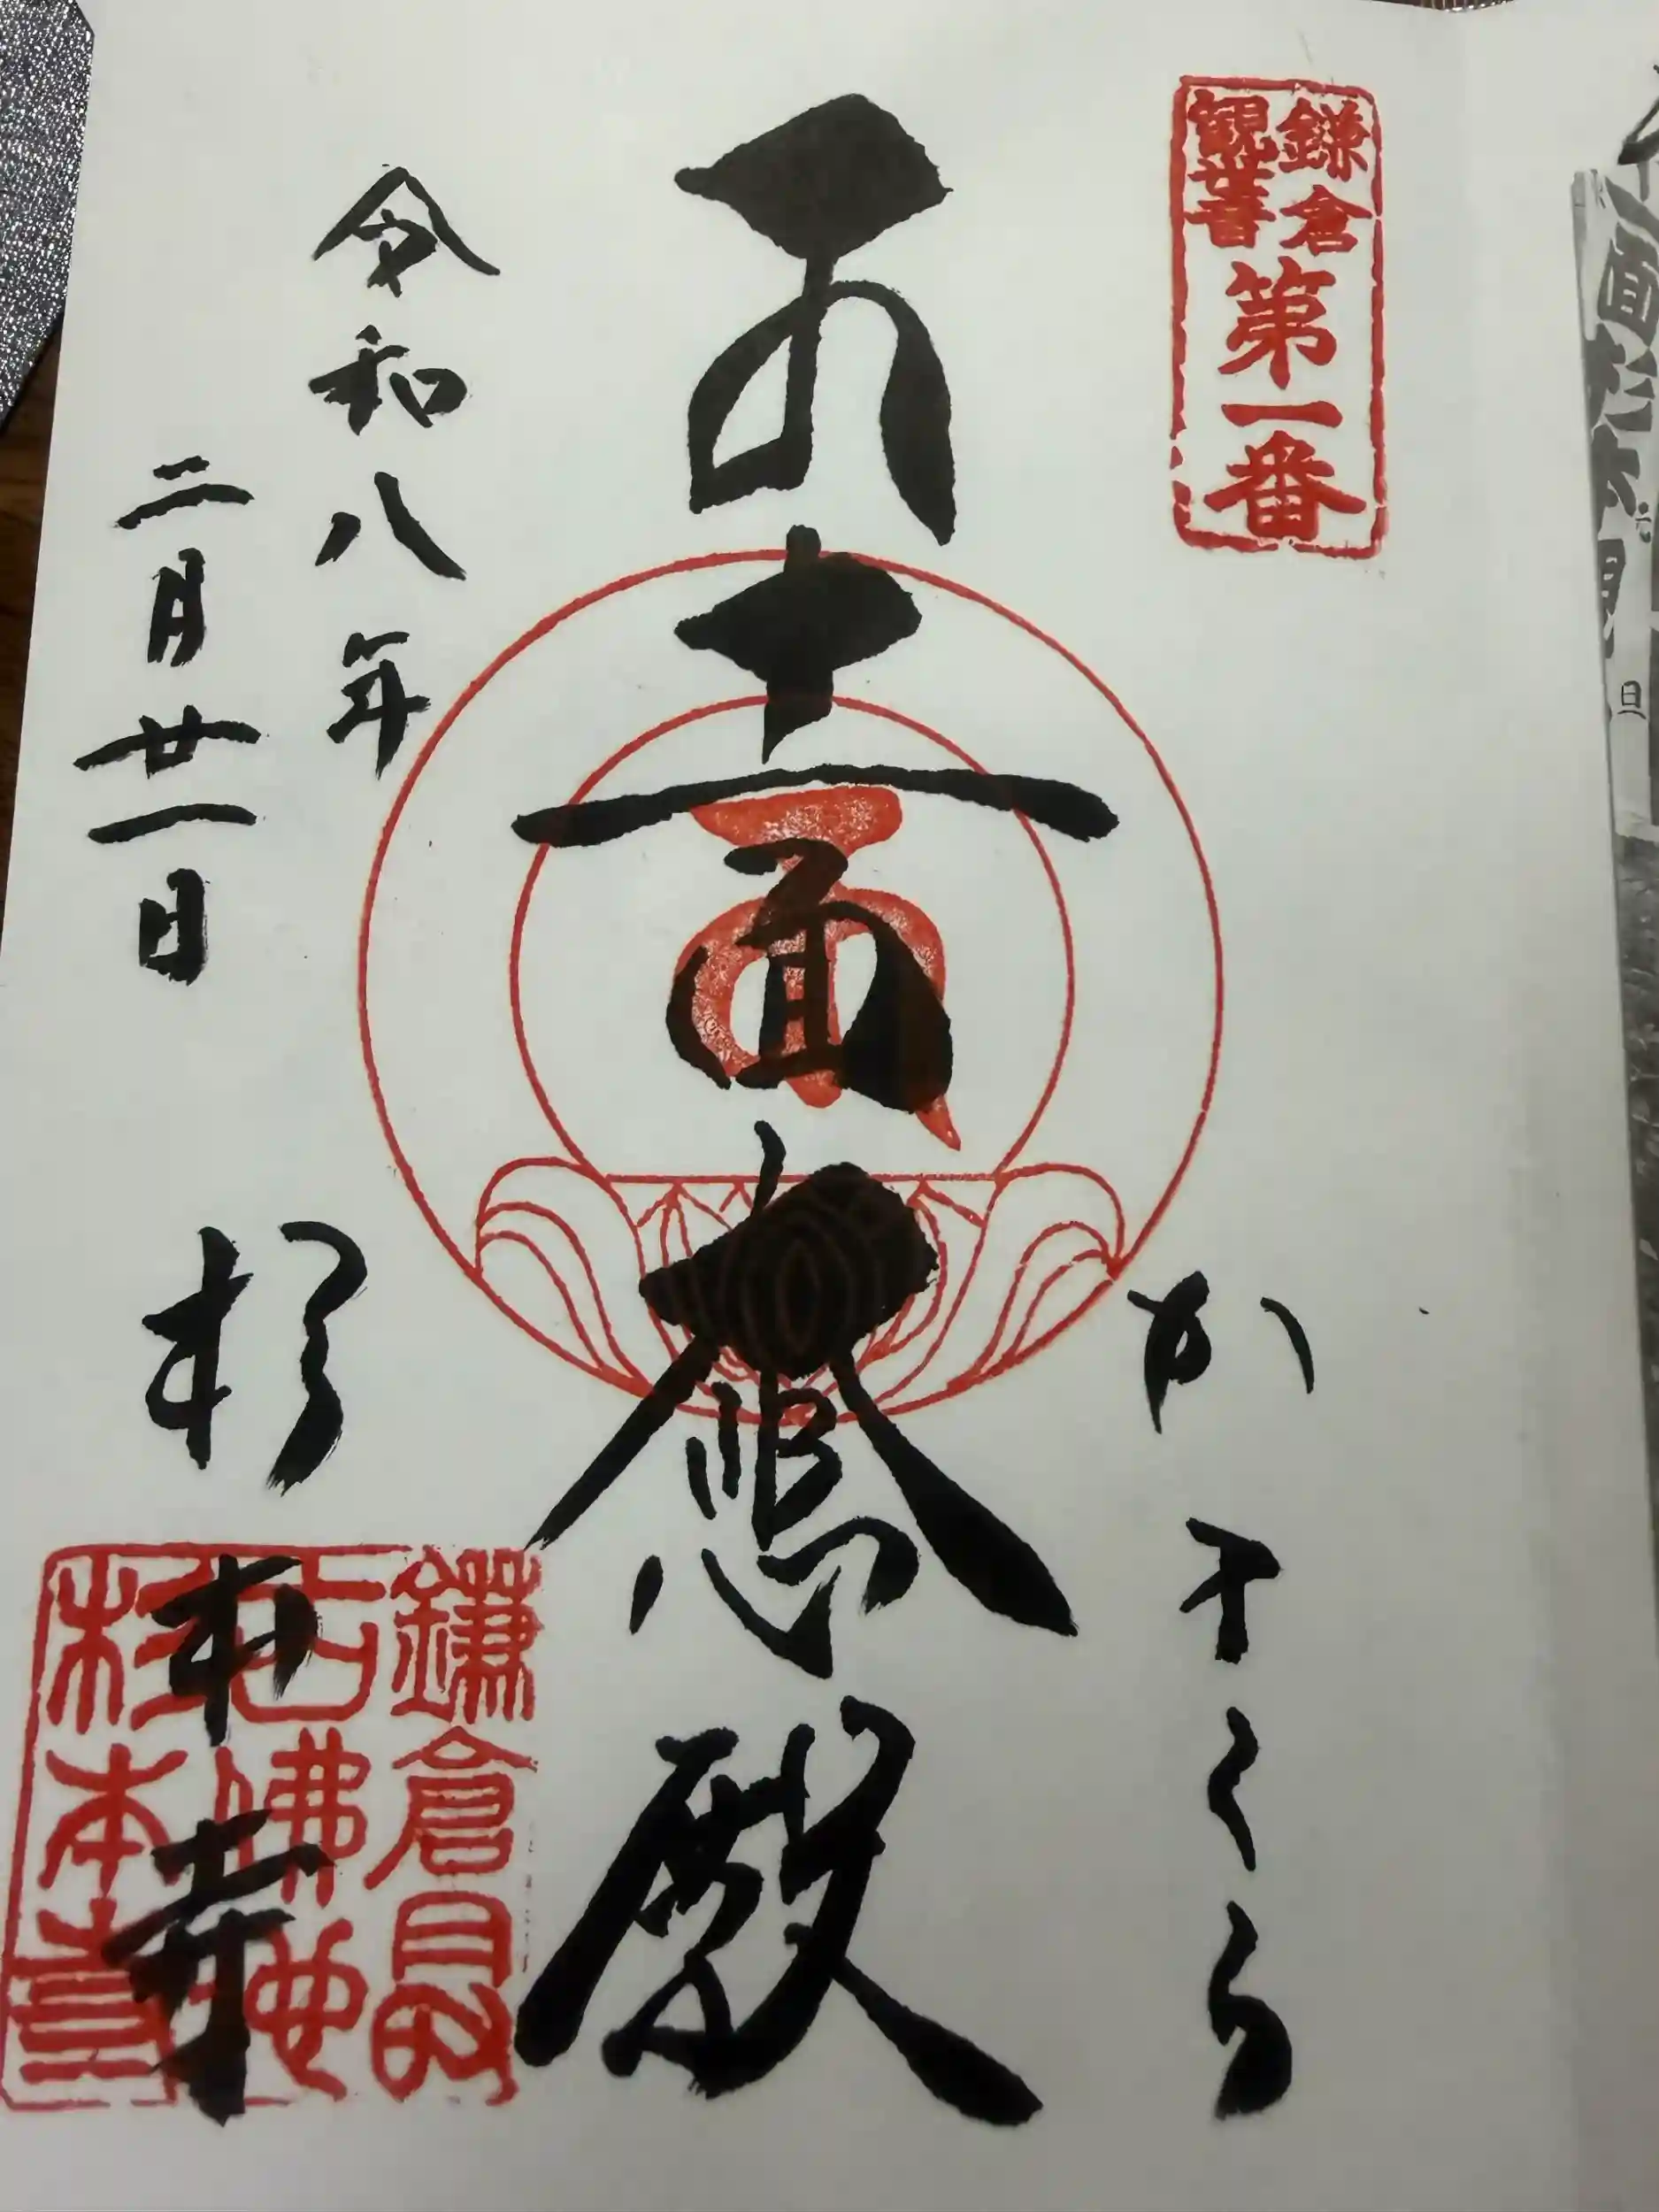 鎌倉
觀音
第一番
かまくら
十一面大悲殿
令和八年
二月廿一日
杉本寺
鎌倉最
古佛地
杉本寺